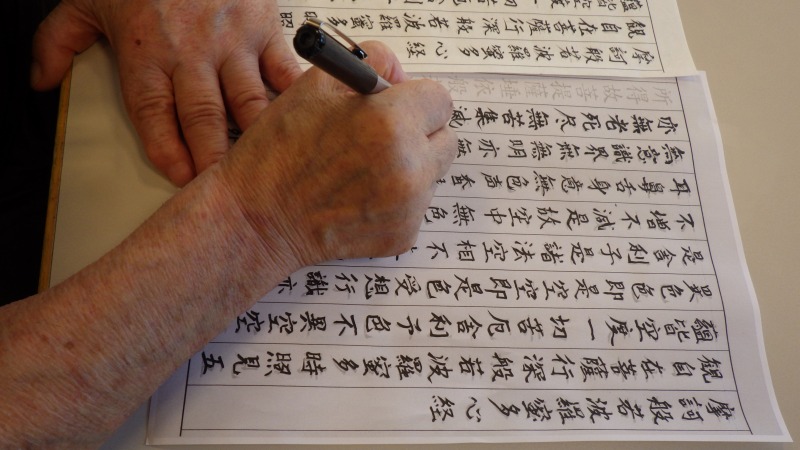 摩訶般若波羅蜜多心経
観自在菩薩行深般若波羅蜜多時照見五
蘊皆空度一切苦厄舎利子色不異空空
異色色即是空空即是色受想行識亦
是舎利子是諸法空相不
不増不減是故空中無色
耳鼻舌身意無色声香
無意識界無無明亦無
亦無老死尽無苦集滅
所得故菩提薩埵依般
摩訶般若波羅蜜多心経
観自在菩薩行深般若波羅蜜多時照
蘊皆